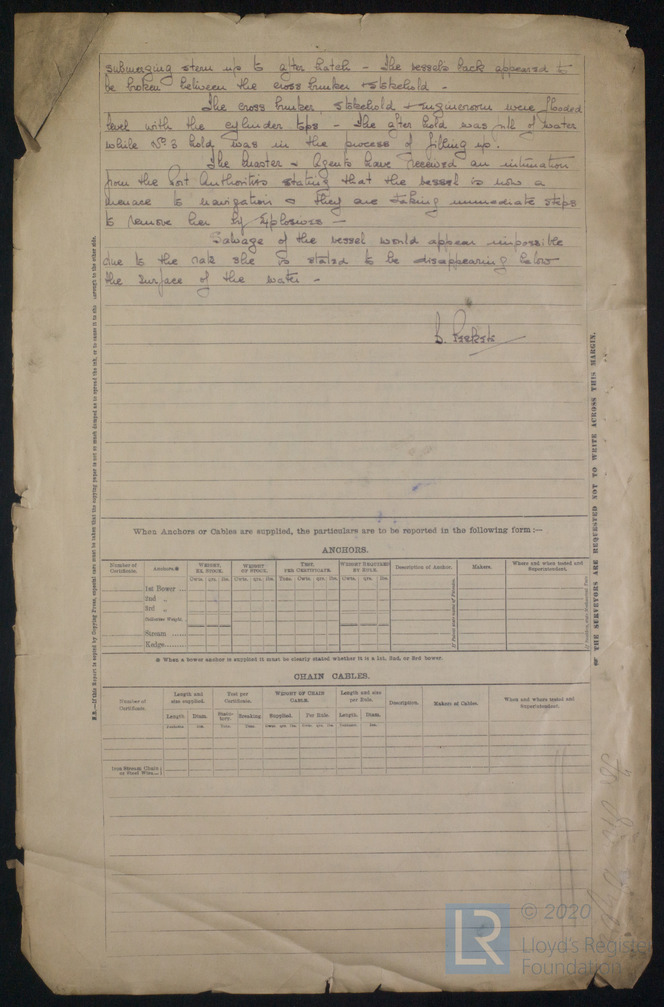 submerging stern up to after hatch - The vessel's back appeared to
be broken between the cross bunker & stokehold -
The cross bunker, stokehold & engineroom were flooded
level with the cylinder tops - The after hold was full of water
while No 3 hold was in the process of filling up.
The Master & Agents have received an intimation
from the Port Authorities stating that the vessel is now a
menace to navigation & they are taking immediate steps
to remove her by explosives -
Salvage of the vessel would appear impossible
due to the rate she is stated to be disappearing below
the surface of the water -
When Anchors or Cables are supplied, the particulars are to be reported in the following form :—
ANCHORS.
Number of Certificate. Anchors.* WEIGHT, EX. STOCK. WEIGHT OF STOCK. TEST, PER CERTIFICATE. WEIGHT REQUIRED BY RULE. Description of Anchor. Makers. Where and when tested and Superintendent.
Cwts. qrs. lbs. Cwts. qrs. lbs. Tons. Cwts. qrs. lbs. Cwts. qrs. lbs.
1st Bower ...
2nd „
3rd „
Collective Weight
Stream ......
Kedge ......
* When a bower anchor is supplied it must be clearly stated whether it is a 1st, 2nd, or 3rd bower.
CHAIN CABLES.
Number of Certificate. Length and size supplied. Test per Certificate. WEIGHT OF CHAIN CABLE. Length and size per Rule. Description. Makers of Cables. Where and where tested and Superintendent.
Length. Diam. Statutory. Breaking Supplied. Per Rule. Length. Diam.
Iron Stream Chain or Steel Wire...
THE SURVEYORS ARE REQUESTED NOT TO WRITE ACROSS THIS MARGIN.
LR
© 2020
Lloyd's Register
Foundation